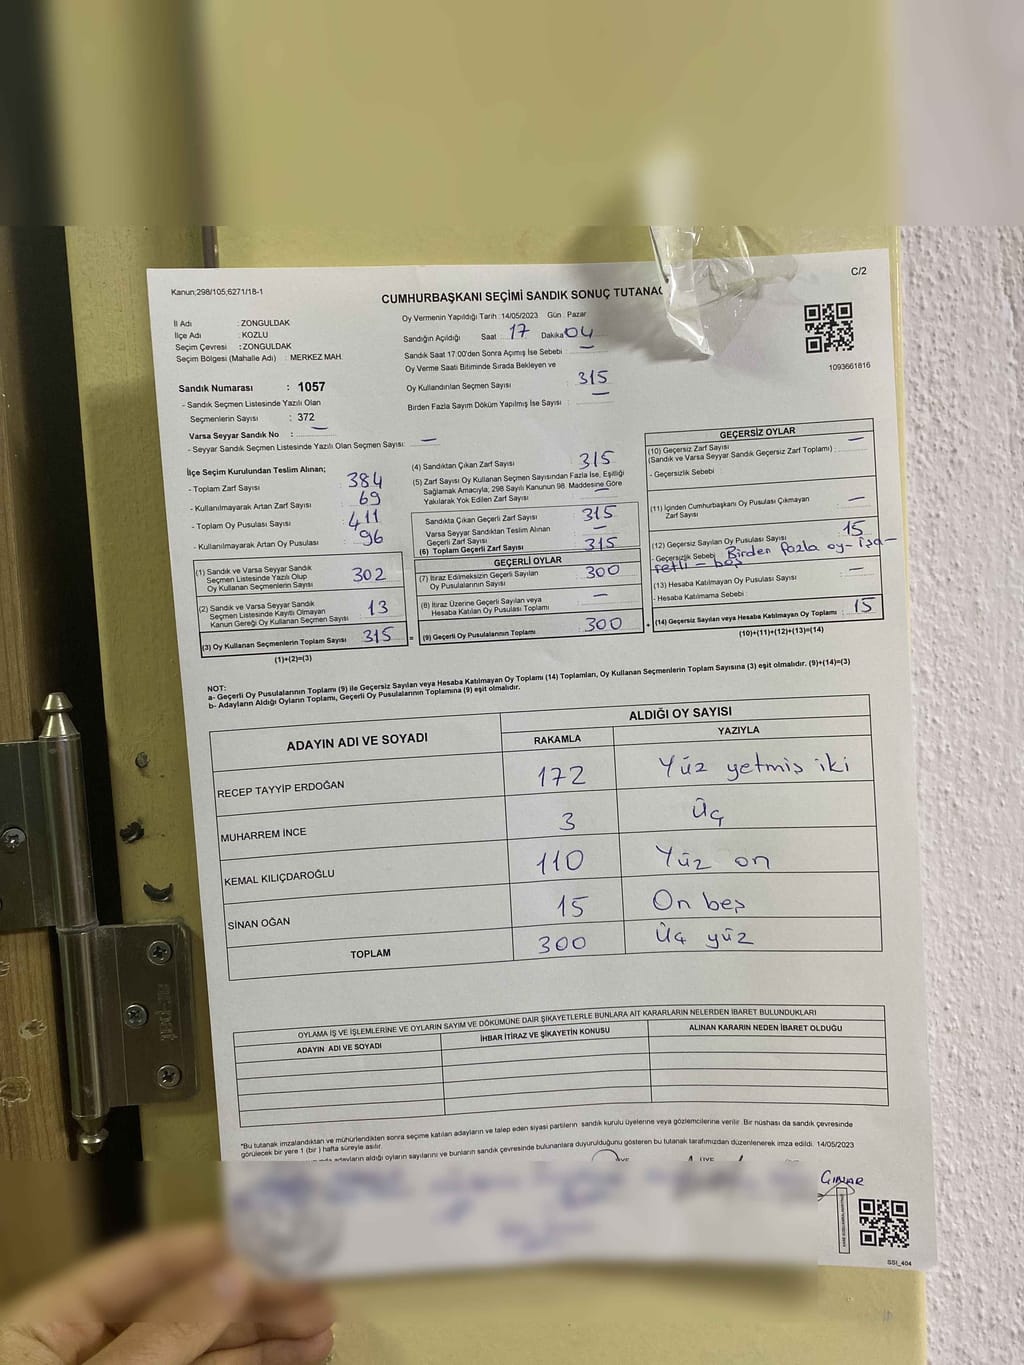 Kanun;298/105;6271/18-1
C/2
CUMHURBAŞKANI SEÇİMİ SANDIK SONUÇ
1093661816
İl Adı : ZONGULDAK
İlçe Adı : KOZLU
Seçim Çevresi : ZONGULDAK
Seçim Bölgesi (Mahalle Adı) : MERKEZ MAH.
Sandık Numarası : 1057
- Sandık Seçmen Listesinde Yazılı Olan
Seçmenlerin Sayısı : 372
Varsa Seyyar Sandık No : —
- Seyyar Sandık Seçmen Listesinde Yazılı Olan Seçmen Sayısı: —
Oy Vermenin Yapıldığı Tarih : 14/05/2023 Gün : Pazar
Sandığın Açıldığı Saat 17 Dakika 04
Sandık Saat 17:00'den Sonra Açımış İse Sebebi : —
Oy Verme Saati Bitiminde Sırada Bekleyen ve
Oy Kullandırılan Seçmen Sayısı : 315
Birden Fazla Sayım Döküm Yapılmış İse Sayısı : —
İlçe Seçim Kurulundan Teslim Alınan;
- Toplam Zarf Sayısı : 384
- Kullanılmayarak Artan Zarf Sayısı : 69
- Toplam Oy Pusulası Sayısı : 411
- Kullanılmayarak Artan Oy Pusulası : 96
(1) Sandık ve Varsa Seyyar Sandık
Seçmen Listesinde Yazılı Olup
Oy Kullanan Seçmenlerin Sayısı : 302
(2) Sandık ve Varsa Seyyar Sandık
Seçmen Listesinde Kayıtlı Olmayan
Kanun Gereği Oy Kullanan Seçmen Sayısı : 13
(3) Oy Kullanan Seçmenlerin Toplam Sayısı : 315
(1)+(2)=(3)
(4) Sandıktan Çıkan Zarf Sayısı : 315
(5) Zarf Sayısı Oy Kullanan Seçmen Sayısından Fazla İse, Eşitliği
Sağlamak Amacıyla, 298 Sayılı Kanunun 98. Maddesine Göre
Yakılarak Yok Edilen Zarf Sayısı : —
Sandıkta Çıkan Geçerli Zarf Sayısı : 315
Varsa Seyyar Sandıktan Teslim Alınan
Geçerli Zarf Sayısı : —
(6) Toplam Geçerli Zarf Sayısı : 315
GEÇERLİ OYLAR
(7) İtiraz Edilmeksizin Geçerli Sayılan
Oy Pusulalarının Sayısı : 300
(8) İtiraz Üzerine Geçerli Sayılan veya
Hesaba Katılan Oy Pusulası Toplamı : —
(9) Geçerli Oy Pusulalarının Toplamı : 300
GEÇERSİZ OYLAR
(10) Geçersiz Zarf Sayısı
(Sandık ve Varsa Seyyar Sandık Geçersiz Zarf Toplamı) : —
- Geçersizlik Sebebi :
(11) İçinden Cumhurbaşkanı Oy Pusulası Çıkmayan
Zarf Sayısı : —
(12) Geçersiz Sayılan Oy Pusulası Sayısı : 15
- Geçersizlik Sebebi : Birden fazla oy - İşa-
retli - boş
(13) Hesaba Katılmayan Oy Pusulası Sayısı : —
- Hesaba Katılmama Sebebi :
(14) Geçersiz Sayılan veya Hesaba Katılmayan Oy Toplamı : 15
(10)+(11)+(12)+(13)=(14)
NOT:
a- Geçerli Oy Pusulalarının Toplamı (9) ile Geçersiz Sayılan veya Hesaba Katılmayan Oy Toplamı (14) Toplamları, Oy Kullanan Seçmenlerin Toplam Sayısına (3) eşit olmalıdır. (9)+(14)=(3)
b- Adayların Aldığı Oyların Toplamı, Geçerli Oy Pusulalarının Toplamına (9) eşit olmalıdır.
ADAYIN ADI VE SOYADI
ALDIĞI OY SAYISI
RAKAMLA YAZIYLA
RECEP TAYYİP ERDOĞAN 172 Yüz yetmiş iki
MUHARREM İNCE 3 Üç
KEMAL KILIÇDAROĞLU 110 Yüz on
SİNAN OĞAN 15 On beş
TOPLAM 300 Üç yüz
OYLAMA İŞ VE İŞLEMLERİNE VE OYLARIN SAYIM VE DÖKÜMÜNE DAİR ŞİKAYETLERLE BUNLARA AİT KARARLARIN NELERDEN İBARET BULUNDUKLARI
ADAYIN ADI VE SOYADI İHBAR İTİRAZ VE ŞİKAYETİN KONUSU ALINAN KARARIN NEDEN İBARET OLDUĞU
"Bu tutanak imzalandıktan ve mühürlendikten sonra seçime katılan adayların ve talep eden siyasi partilerin sandık kurulu üyelerine veya gözlemcilerine verilir. Bir nüshası da sandık çevresinde
görülecek bir yere 1 (bir) hafta süreyle asılır.
adayların aldığı oyların sayılarını ve bunların sandık çevresinde bulunanlara duyurulduğunu gösteren bu tutanak tarafımızdan düzenlenerek imza edildi. 14/05/2023
SSI_404